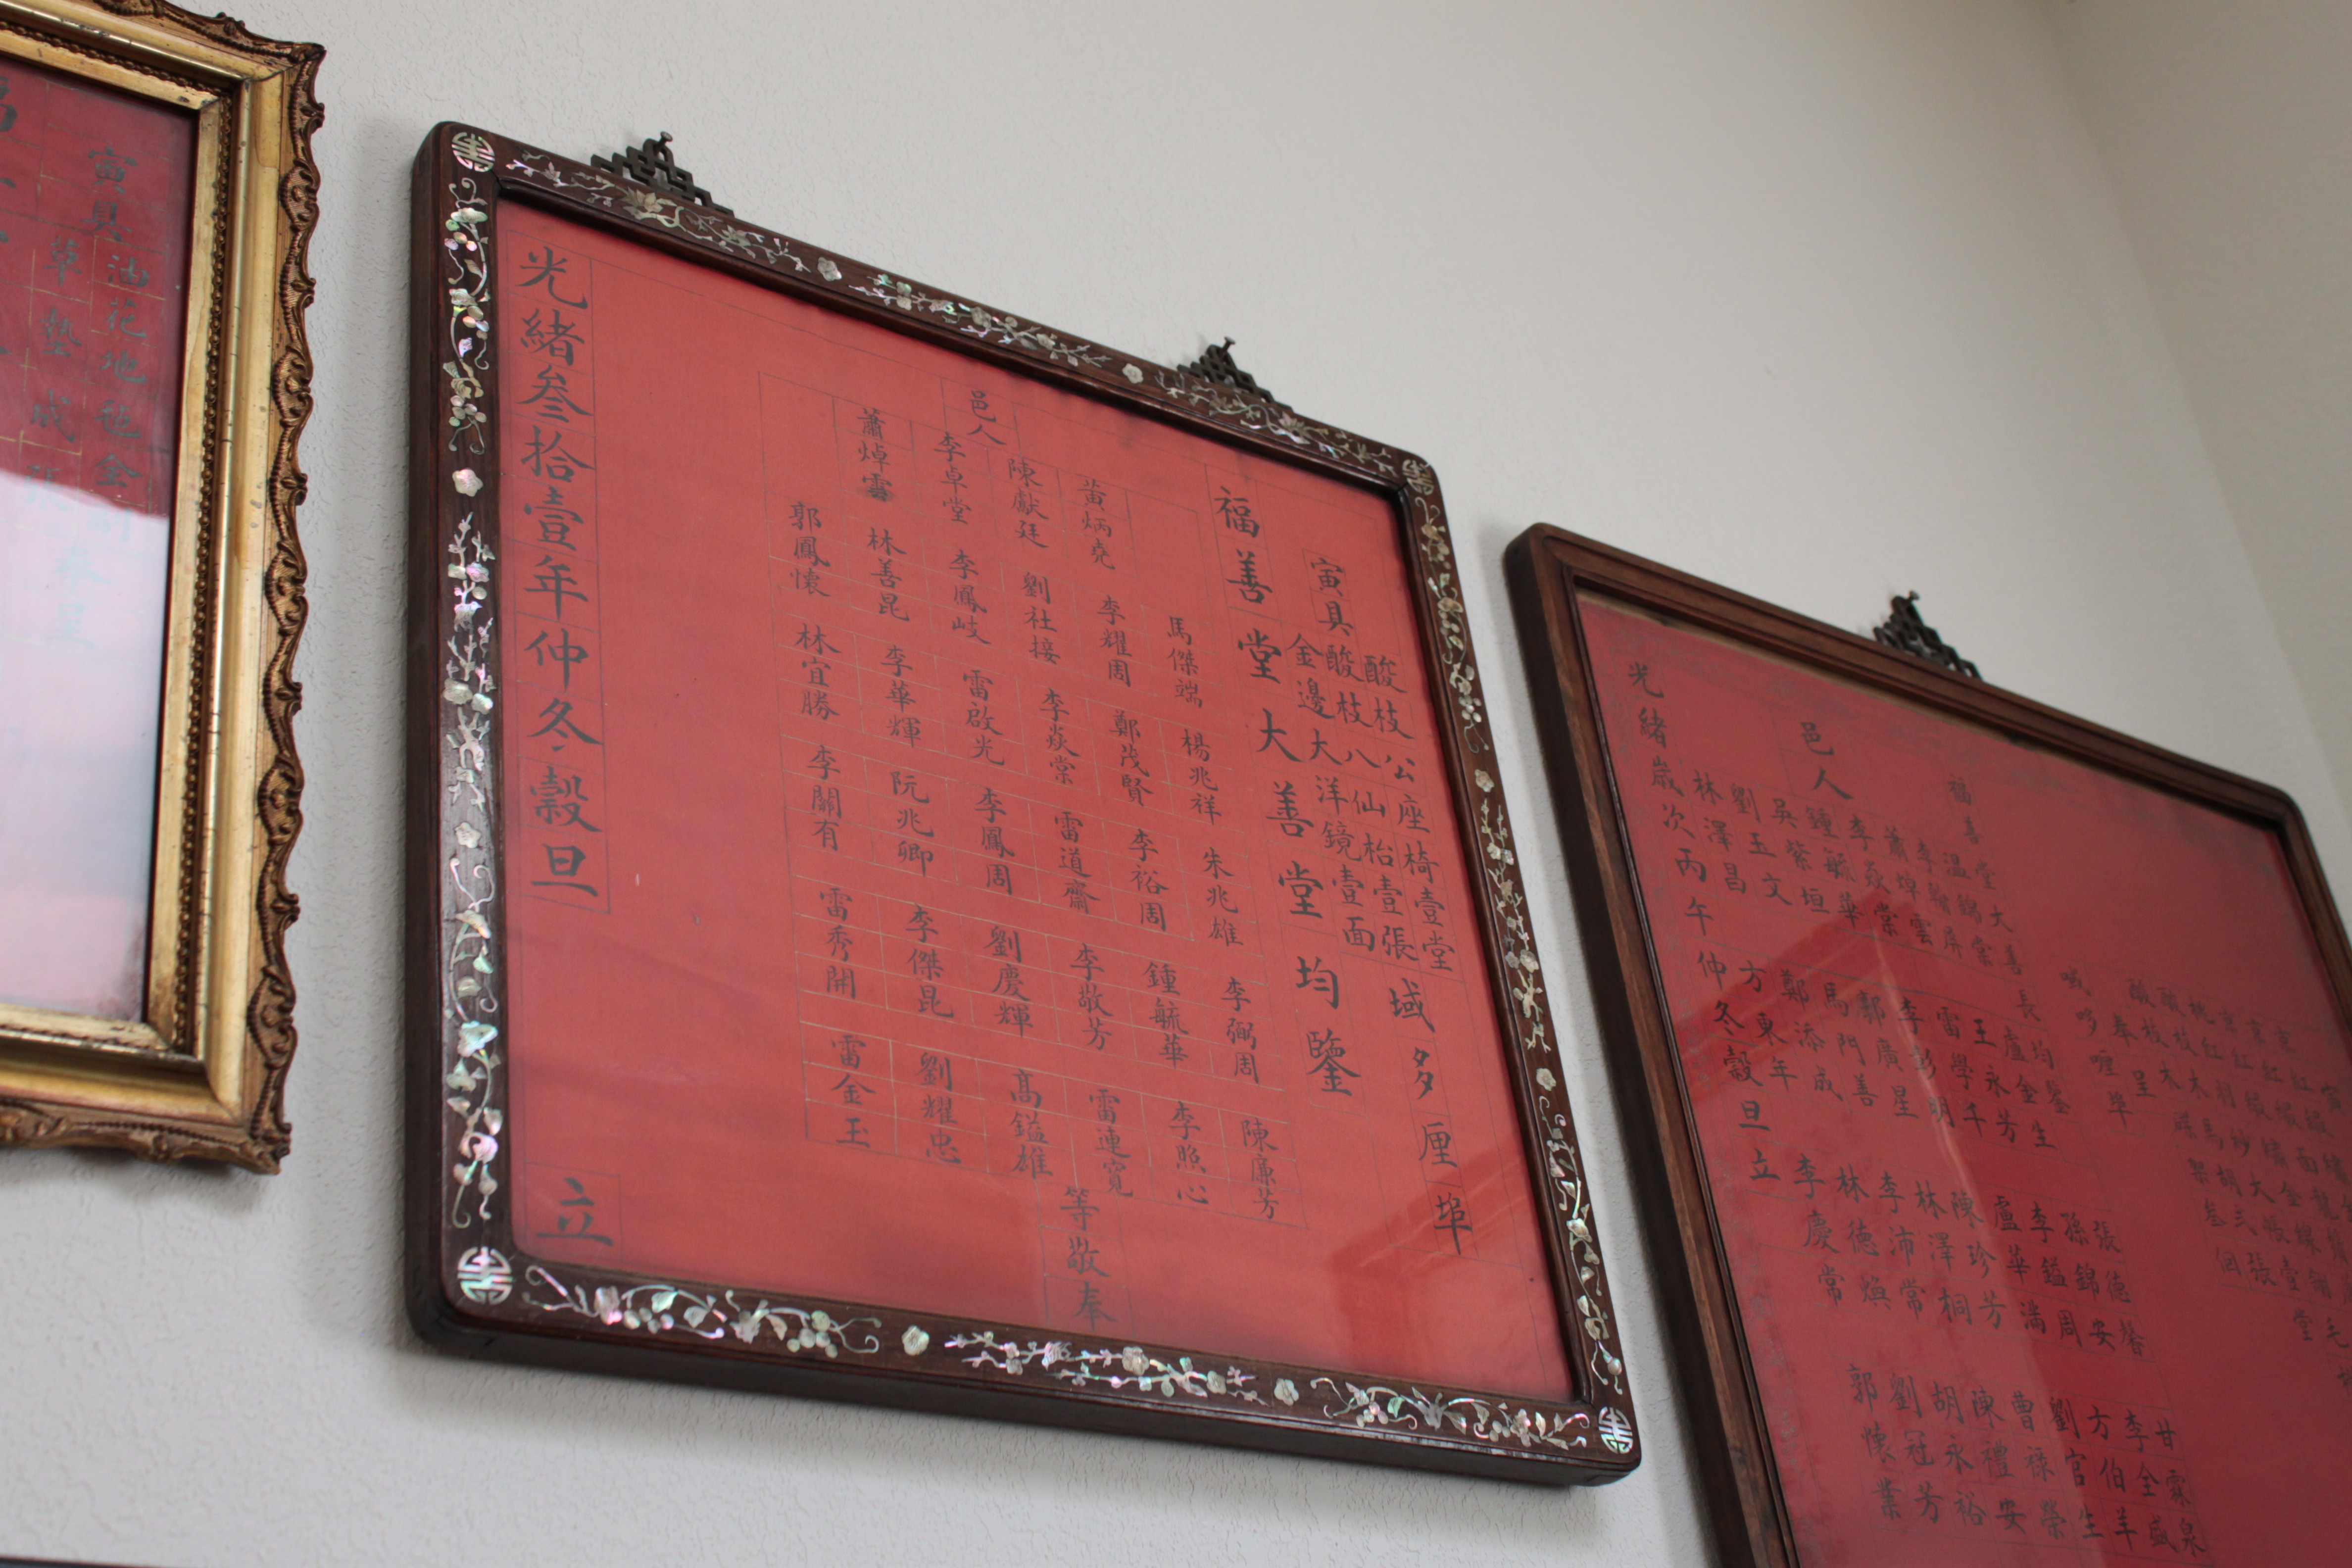 哦哆喱埠
奉呈
福善堂大善長均鑒
温錦棠 盧金生 張德馨 甘霖泉
李翰屏 王永芳 孫錦安 李全盛
蕭焯雲 雷學千 李鎰周 方伯羊
李焱棠 李彭明 盧華滿 劉官生
邑人
鍾毓華 鄺廣星 陳珍芳 曹祿榮
吳紫垣 馬門善 林澤桐 陳禮安
劉玉文 鄭添成 李沛常 胡永裕
林澤昌 方東年 林德煥 劉冠芳
李慶常 郭懷業
光緒歲次丙午仲冬穀旦立
域多厘埠
寅具
酸枝公座椅壹堂
酸枝八仙枱壹張
金邊大洋鏡壹面
福善堂大善堂均鑒
馬傑端 楊兆祥 朱兆雄 李弼周 陳廉芳
黃炳堯 李耀周 鄭茂賢 李裕周 鍾毓華 李照心
陳獻廷 劉社接 李焱棠 雷道齋 李敬芳 雷連寬
邑人
李卓堂 李鳳岐 雷啟光 李鳳周 劉慶輝 高鎰雄
蕭焯雲 林善昆 李華輝 阮兆卿 李傑昆 劉耀忠
郭鳳懷 林宜勝 李關有 雷秀開 雷金玉
等敬奉
光緒叁拾壹年仲冬穀旦 立
寅具
油花地毡全副
草墊成張
奉呈